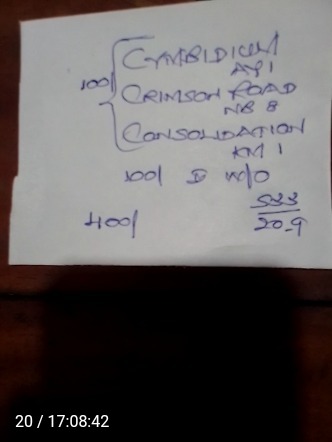 100/ { CYMBIDIUM
AP 1
CRIMSON ROAD
NB 8
CONSOLIDATION
KM 1
100/ D W/O
400/
533
20.9
20 / 17:08:42